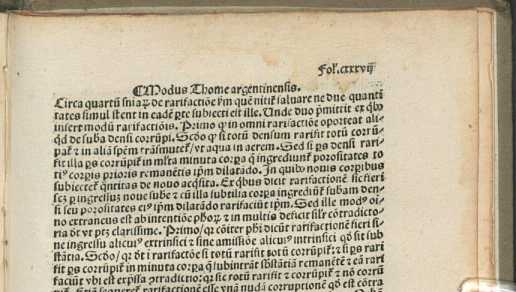 Fol. cxxxvij
Modus Thome argentinensis.
Circa quartū snīaꝝ de rarifactiōe ꝑm quē nitit̉ saluare ne due quanti
tates simul stent in eadē ꝑte subiecti est ille. Unde duo p̄mittit ex qͥbꝰ
insert modū rarifactiōis. Primo ꝙ in omni rarifactiōe oporteat ali-
qͥd de suba densi corrūpi. Scd̓o ꝙ si totū densum rarifit totū corrū-
pat̉ ⁊ in aliā spēm trāsmutet̉/vt aqua in aerem. Sed si ꝑs densi rari-
fit illa ꝑs corrūpit̉ in ml̓ta minuta corꝑa ꝗ̄ ingrediunt̉ porositates to
tiꝰ corꝑis prioris remanētis ip̄m dilatādo. In quibꝰ nouis corꝑibus
subiectet̉ qn̄titas de nouo acq̄sita. Ex qͥbus dicit rarifactionē sic fieri
ingressus noue sube ⁊ cū illa subtilia corꝑa ingrediūt̉ subam den-
si seu porositates eiꝰ ip̄m dilatādo rarefaciūt ip̄m. Sed ille modꝰ oī-
no extraneus est ab intentiōe ph̄oꝝ ⁊ in multis deficit sil̓r cōtradicto-
ria dt̄ vt ptꝫ clarissime. Primo/qꝛ cōiter ph̄i dicūt rarifactionē fieri si-
ne ingressu alicuiꝰ extrinsici ⁊ sine amissiōe alicuiꝰ intrinsici qd̓ sit sub
stātia. Scd̓o/qꝛ dt̄ ꝙ rarifactiōe si totū rarifit totū corrūpit̉: ⁊ si ꝑs rari
fit ꝑs corrūpit̉ in minuta corꝑa ꝗ̄ subintrāt sb̄stātiā remanētē ⁊ eā rari
faciūt vbi est exp̄ssa ꝯtradictio: qꝛ sic totū rarifit ⁊ corrūpit̉ ⁊ nō corrū
rarifactionē esse vnā nudā corruptionē qd̓ est cōtra